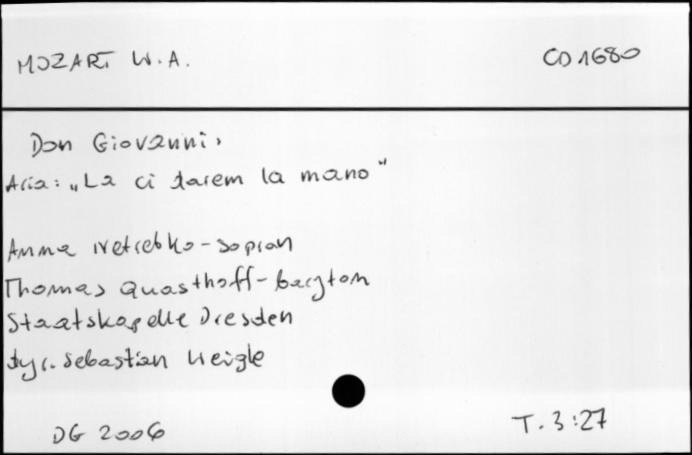 MOZART W.A. CD 1680
Don Giovanni,
Aria: „La ci darem la mano"
Anna Netrebko - sopran
Thomas Quasthoff - baryton
Staatskapelle Dresden
dyr. Sebastian Weigle
DG 2006 T. 3:27